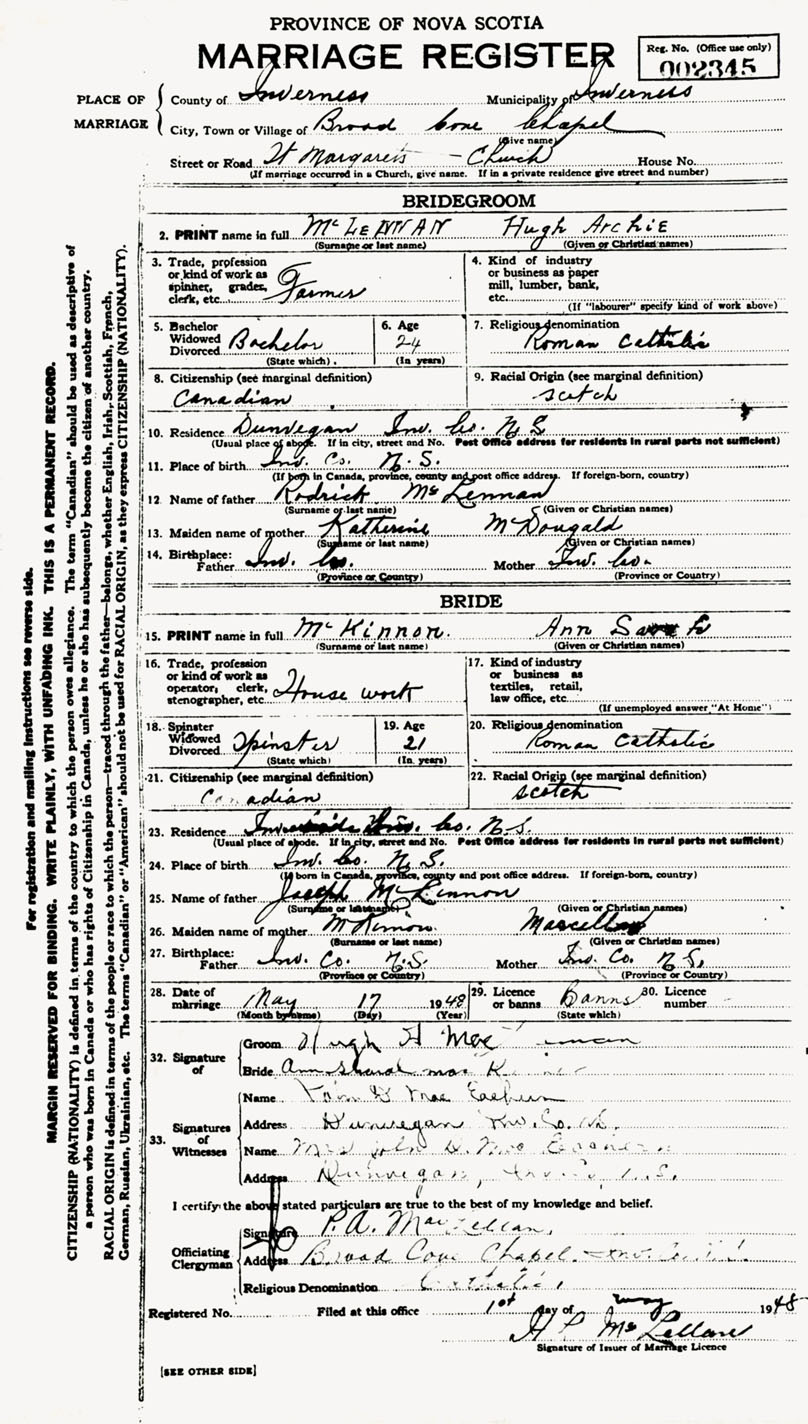 PROVINCE OF NOVA SCOTIA
MARRIAGE REGISTER
Reg. No. (Office use only)
002345
PLACE OF MARRIAGE
County of Inverness Municipality of Inverness
City, Town or Village of Broad Cove Chapel
(Give name)
Street or Road St Margarets - Church House No.
(If marriage occurred in a Church, give name. If in a private residence give street and number)
BRIDEGROOM
2. PRINT name in full McLENNAN Hugh Archie
(Surname or last name) (Given or Christian names)
3. Trade, profession or kind of work as spinner, grader, clerk, etc. Farmer
4. Kind of industry or business as paper mill, lumber, bank, etc.
(If "labourer" specify kind of work above)
5. Bachelor Widowed Divorced Bachelor
(State which)
6. Age 24
(In years)
7. Religious denomination Roman Catholic
8. Citizenship (see marginal definition) Canadian
9. Racial Origin (see marginal definition) Scotch
10. Residence Dunvegan Inv. Co. N.S.
(Usual place of abode. If in city, street and No. Post Office address for residents in rural parts not sufficient)
11. Place of birth Inv. Co. N.S.
(If born in Canada, province, county and post office address. If foreign-born, country)
12. Name of father Rodrick McLennan
(Surname or last name) (Given or Christian names)
13. Maiden name of mother Katherine McDougald
(Surname or last name) (Given or Christian names)
14. Birthplace: Father Inv. Co. Mother Inv. Co.
(Province or Country) (Province or Country)
BRIDE
15. PRINT name in full McKinnon. Ann Sarah
(Surname or last name) (Given or Christian names)
16. Trade, profession or kind of work as operator, clerk, stenographer, etc. House work
17. Kind of industry or business as textiles, retail, law office, etc.
(If unemployed answer "At Home")
18. Spinster Widowed Divorced Spinster
(State which)
19. Age 21
(In years)
20. Religious denomination Roman Catholic
21. Citizenship (see marginal definition) Canadian
22. Racial Origin (see marginal definition) Scotch
23. Residence Inv. Co. N.S.
(Usual place of abode. If in city, street and No. Post Office address for residents in rural parts not sufficient)
24. Place of birth Inv. Co. N.S.
(If born in Canada, province, county and post office address. If foreign-born, country)
25. Name of father Joseph McKinnon
(Surname or last name) (Given or Christian names)
26. Maiden name of mother McKinnon
(Surname or last name) (Given or Christian names)
27. Birthplace: Father Inv. Co. N.S. Mother Inv. Co. N.S.
(Province or Country) (Province or Country)
28. Date of marriage May 17 1948
(Month by name) (Day) (Year)
29. Licence or banns Banns
(State which)
30. Licence number
32. Signature of
Groom Hugh A
Bride Ann Mac
33. Signatures of Witnesses
Name
Address Dunvegan Inv. Co.
Name Mrs John D.
Address Dunvegan,
I certify the above stated particulars are true to the best of my knowledge and belief.
Officiating Clergyman
Signature P.A. MacLellan,
Address Broad Cove Chapel. Inv. Co.
Religious Denomination Catholic
Registered No. Filed at this office 1st day of May 1948
H. McLellan
Signature of Issuer of Marriage Licence
[SEE OTHER SIDE]
For registration and mailing instructions see reverse side.
MARGIN RESERVED FOR BINDING. WRITE PLAINLY, WITH UNFADING INK. THIS IS A PERMANENT RECORD.
CITIZENSHIP (NATIONALITY) is defined in terms of the country to which the person owes allegiance. The term "Canadian" should be used as descriptive of
a person who was born in Canada or who has rights of Citizenship in Canada, unless he or she has subsequently become the citizen of another country.
RACIAL ORIGIN is defined in terms of the people or race to which the person—traced through the father—belongs, whether English, Irish, Scottish, French,
German, Russian, Ukrainian, etc. The terms "Canadian" or "American" should not be used for RACIAL ORIGIN, as they express CITIZENSHIP (NATIONALITY).